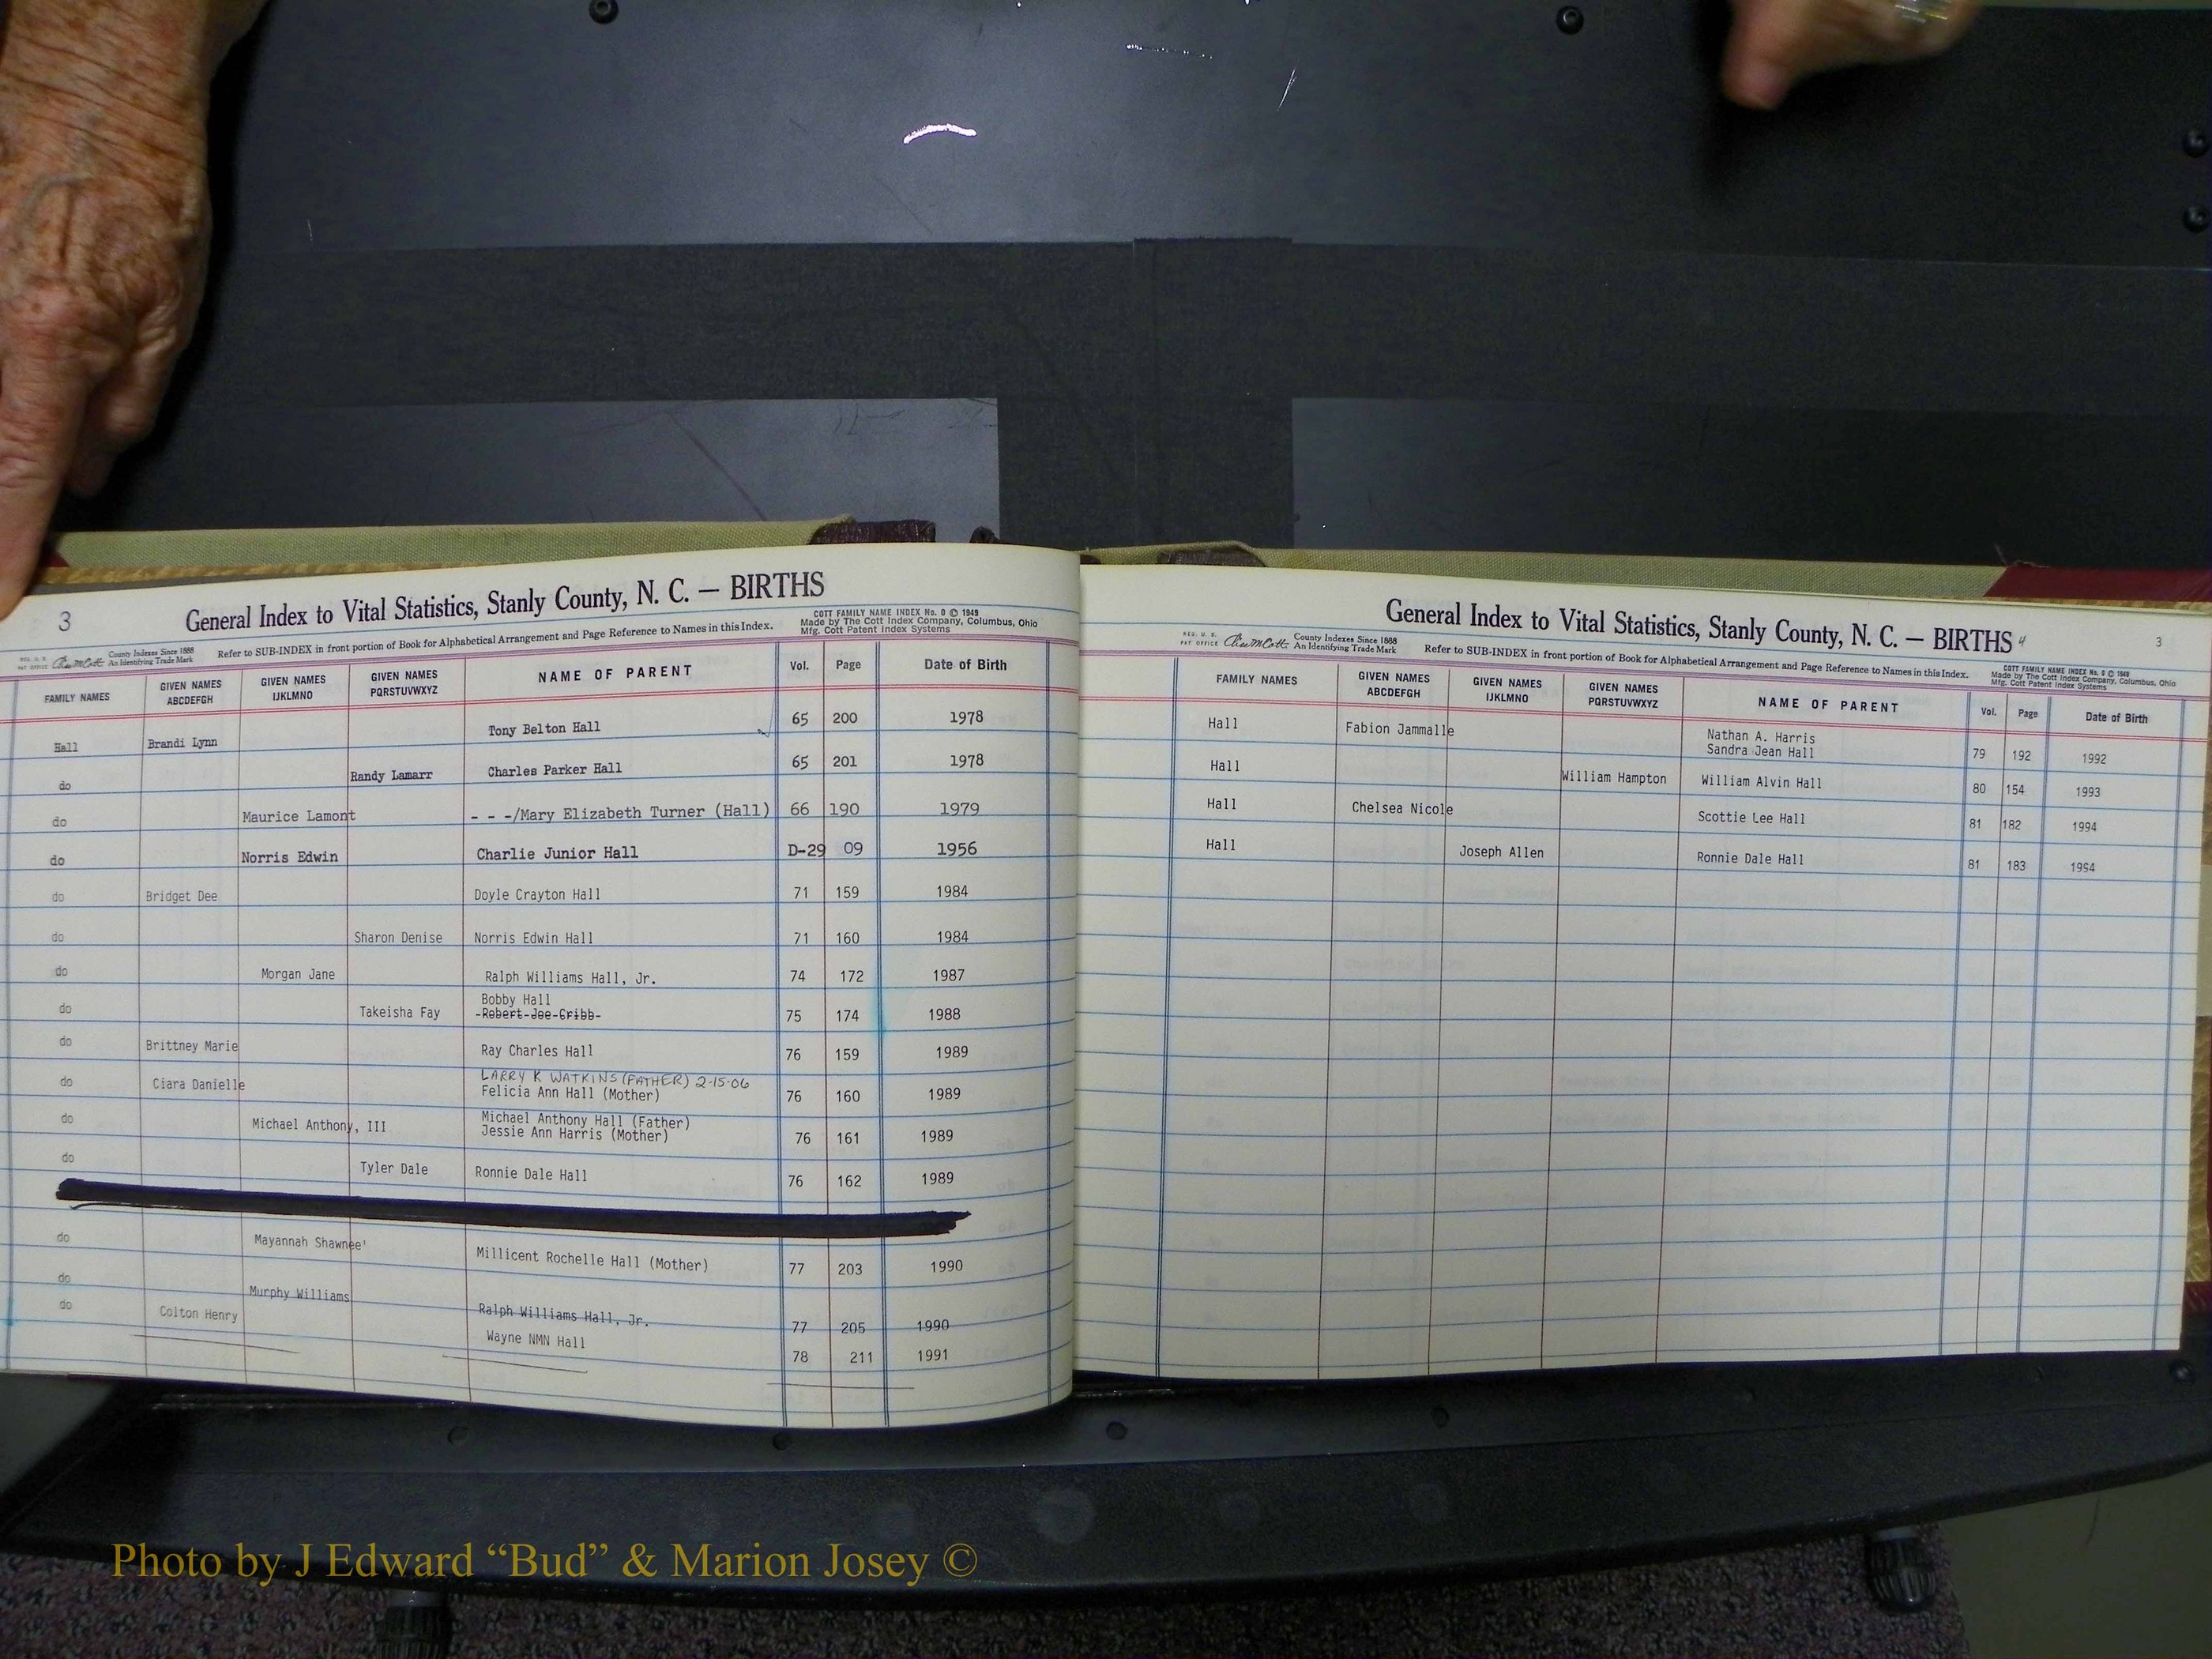 3
General Index to Vital Statistics, Stanly County, N. C. — BIRTHS
COTT FAMILY NAME INDEX No. 0 © 1949
Made by The Cott Index Company, Columbus, Ohio
Mfg. Cott Patent Index Systems
REG. U. S. PAT OFFICE County Indexes Since 1888 An Identifying Trade Mark
Refer to SUB-INDEX in front portion of Book for Alphabetical Arrangement and Page Reference to Names in this Index.
FAMILY NAMES GIVEN NAMES ABCDEFGH GIVEN NAMES IJKLMNO GIVEN NAMES PQRSTUVWXYZ NAME OF PARENT Vol. Page Date of Birth
Hall Brandi Lynn Tony Belton Hall 65 200 1978
do Randy Lamarr Charles Parker Hall 65 201 1978
do Maurice Lamont - - -/Mary Elizabeth Turner (Hall) 66 190 1979
do Norris Edwin Charlie Junior Hall D-29 09 1956
do Bridget Dee Doyle Crayton Hall 71 159 1984
do Sharon Denise Norris Edwin Hall 71 160 1984
do Morgan Jane Ralph Williams Hall, Jr. 74 172 1987
Bobby Hall
do Takeisha Fay -Robert-Joe-Cribb- 75 174 1988
do Brittney Marie Ray Charles Hall 76 159 1989
LARRY K WATKINS (FATHER) 2-15-06
do Ciara Danielle Felicia Ann Hall (Mother) 76 160 1989
Michael Anthony Hall (Father)
do Michael Anthony, III Jessie Ann Harris (Mother) 76 161 1989
do Tyler Dale Ronnie Dale Hall 76 162 1989
do Mayannah Shawnee' Millicent Rochelle Hall (Mother) 77 203 1990
do Murphy Williams Ralph Williams Hall, Jr. 77 205 1990
do Colton Henry Wayne NMN Hall 78 211 1991
General Index to Vital Statistics, Stanly County, N. C. — BIRTHS 4 3
REG. U. S. PAT OFFICE County Indexes Since 1888 An Identifying Trade Mark
Refer to SUB-INDEX in front portion of Book for Alphabetical Arrangement and Page Reference to Names in this Index.
COTT FAMILY NAME INDEX No. 0 © 1949
Made by The Cott Index Company, Columbus, Ohio
Mfg. Cott Patent Index Systems
FAMILY NAMES GIVEN NAMES ABCDEFGH GIVEN NAMES IJKLMNO GIVEN NAMES PQRSTUVWXYZ NAME OF PARENT Vol. Page Date of Birth
Hall Fabion Jammalle Nathan A. Harris
Sandra Jean Hall 79 192 1992
Hall William Hampton William Alvin Hall 80 154 1993
Hall Chelsea Nicole Scottie Lee Hall 81 182 1994
Hall Joseph Allen Ronnie Dale Hall 81 183 1994
Photo by J Edward “Bud” & Marion Josey ©